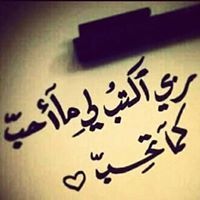 ربي اكتبُ لي ما أحبّ
كما تحِبّ ♡